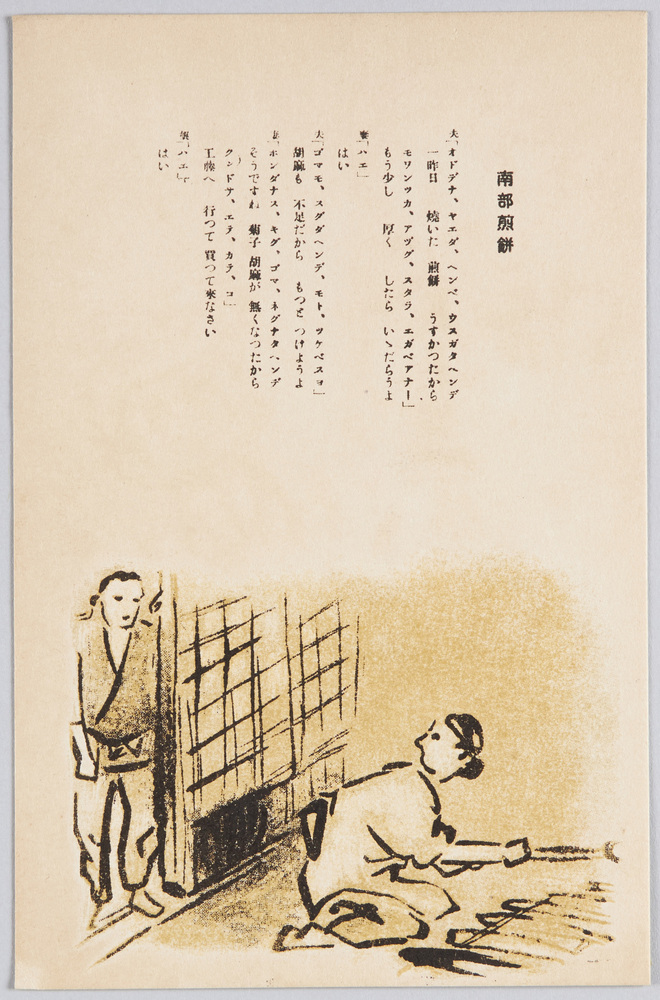 南部煎餅
夫「オドデナ、ヤエダ、ヘンベ、ウスガタヘンデ
一昨日 燒いた 煎餅 うすかつたから
モワンツカ、アヅグ、スタラ、エガベアナー」
もう少し 厚く したら いゝだらうよ
妻「ハエ」
はい
夫「ゴマモ、スグダヘンデ、モト、ツケベスヨ」
胡麻も 不足だから もつと つけようよ
妻「ホンダナス、キグ、ゴマ、ネグナタヘンデ
そうですね 菊子 胡麻が 無くなつたから
クンドサ、エテ、カテ、コ」
工藤へ 行つて 買つて來なさい
「ハエ」
はい